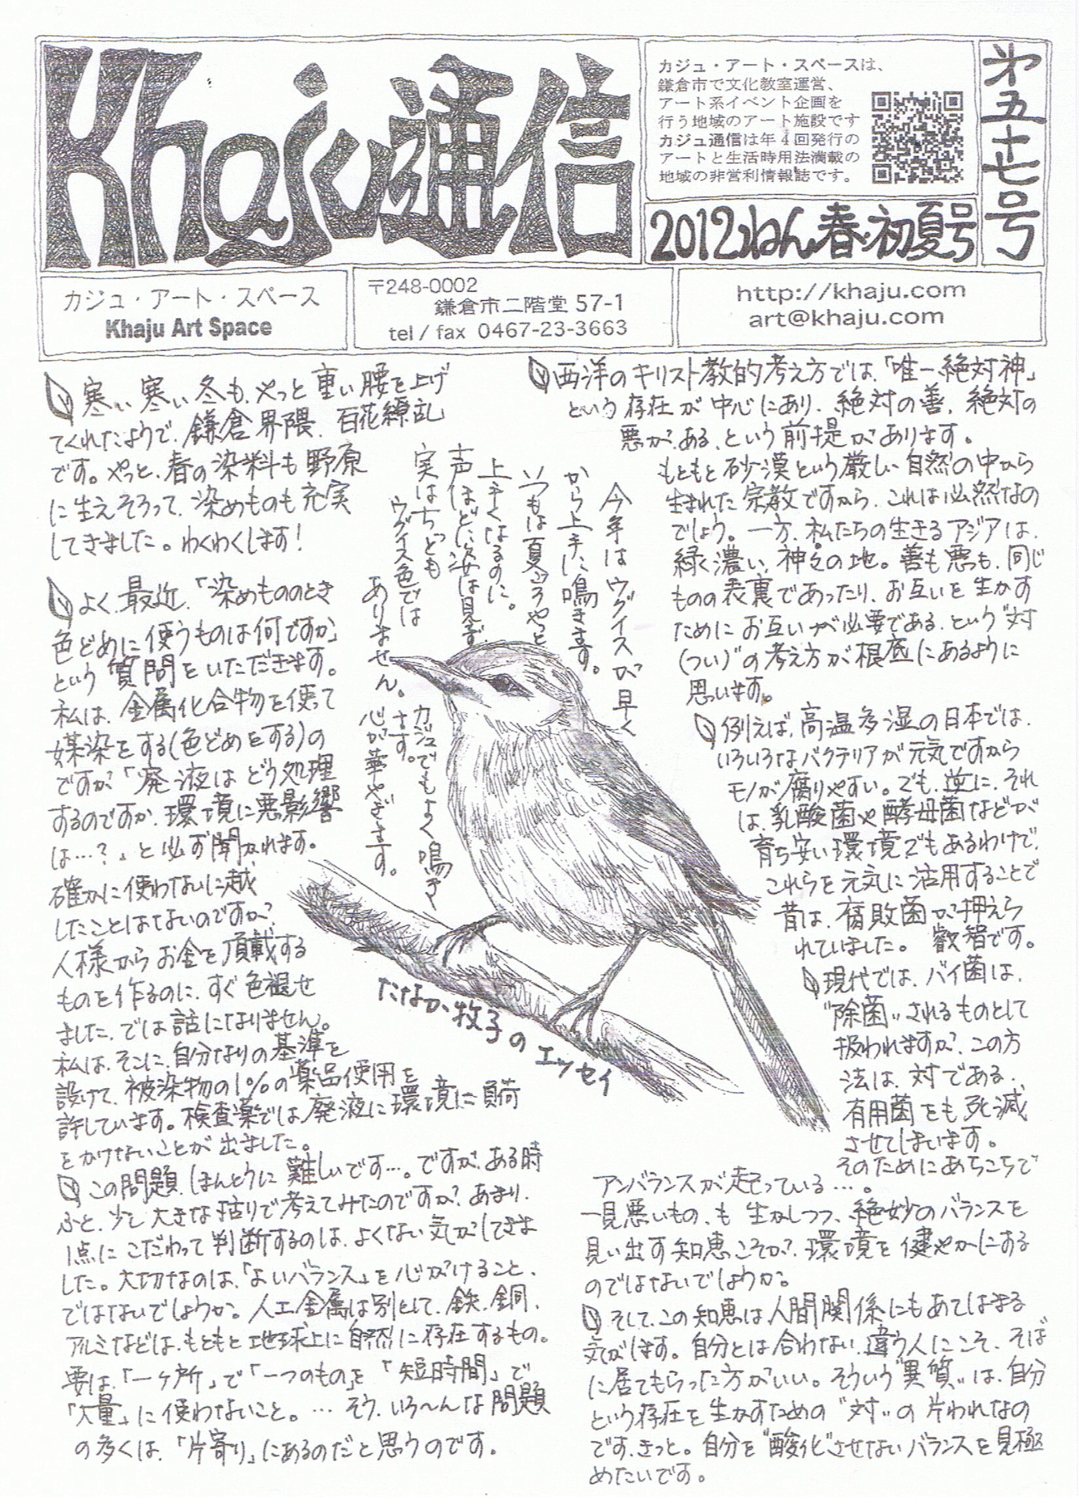 Khaju通信
カジュ・アート・スペースは、
鎌倉市で文化教室運営、
アート系イベント企画を
行う地域のアート施設です
カジュ通信は年4回発行の
アートと生活時用法満載の
地域の非営利情報誌です。
第五十七号
2012ねん春・初夏号
カジュ・アート・スペース
Khaju Art Space
〒248-0002
鎌倉市二階堂 57-1
tel / fax 0467-23-3663
http://khaju.com
art@khaju.com
寒い寒い冬も、やっと重い腰を上げ
てくれたようで、鎌倉界隈、百花繚乱
です。やっと、春の染料も野原
に生えそろって、染めものも充実
してきました。わくわくします!
よく、最近、「染めもののとき
色どめに使うものは何ですか」
という質問をいただきます。
私は、金属化合物を使って
媒染をする(色どめをする)の
ですが「廃液はどう処理
するのですか、環境に悪影響
は…?」と必ず聞かれます。
確かに使わないに越
したことはないのですが、
人様からお金を頂戴する
ものを作るのに、すぐ色褪せ
ました、では話になりません。
私は、そこに、自分なりの基準を
設けて、被染物の1%の薬品使用を
許しています。検査薬では、廃液に環境に負荷
をかけないことが出ました。
この問題、ほんとうに難しいです…。ですが、ある時
ふと、少し大きな括りで考えてみたのですが、あまり、
1点にこだわって判断するのは、よくない気がしてきま
した。大切なのは、「よいバランス」を心がけること、
ではないでしょうか。人工金属は別として、鉄、銅、
アルミなどは、もともと地球上に自然に存在するもの。
要は、「一ヶ所」で「一つのもの」を「短時間」で
「大量」に使わないこと。…そう、いろ〜んな問題
の多くは、「片寄り」にあるのだと思うのです。
今年はウグイスが早く
から上手に鳴きます。
いつもは夏ごろやっと
上手くなるのに。
声ほどに姿は見ず
実はちっとも
ウグイス色では
ありません。
カジュでもよく鳴き
ます。
心が華やぎます。
たなか牧子のエッセイ
西洋のキリスト教的考え方では、「唯一絶対神」
という存在が中心にあり、絶対の善、絶対の
悪が、ある、という前提があります。
もともと砂漠という厳しい自然の中から
生まれた宗教ですから、これは必然なの
でしょう。一方、私たちの生きるアジアは、
緑濃い、神々の地。善も悪も、同じ
ものの表裏であったり、お互いを生かす
ためにお互いが必要である、という“対
(つい)”の考え方が根底にあるように
思います。
例えば、高温多湿の日本では、
いろいろなバクテリアが元気ですから
モノが腐りやすい。でも、逆に、それ
は、乳酸菌や酵母菌などが
育ち安い環境でもあるわけで、
これらを元気に活用することで
昔は、腐敗菌が押えら
れていました。叡智です。
現代では、バイ菌は、
“除菌”されるものとして
扱われますが、この方
法は、対である、
有用菌をも死滅
させてしまいます。
そのためにあちこちで
アンバランスが起っている…。
一見悪いもの、も生かしつつ、絶妙のバランスを
見い出す知恵こそが、環境を健やかにする
のではないでしょうか。
そして、この知恵は、人間関係にもあてはまる
気がします。自分とは合わない、違う人にこそ、そば
に居てもらった方がいい。そういう“異質”は、自分
という存在を生かすための“対”の片われなの
です、きっと。自分を“酸化”させないバランスを見極
めたいです。